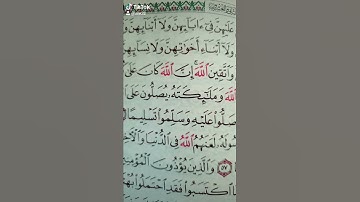 TikTok
عَلَيْهِنَّ فِىٓ ءَابَآئِهِنَّ وَلَآ أَبْنَآئِهِنَّ
وَلَآ أَبْنَآءِ أَخَوَٰتِهِنَّ وَلَا نِسَآئِهِ
وَٱتَّقِينَ ٱللَّهَۚ إِنَّ ٱللَّهَ كَانَ عَلَىٰ
ٱللَّهَ وَمَلَٰٓئِكَتَهُۥ يُصَلُّونَ عَ
صَلُّوا۟ عَلَيْهِ وَسَلِّمُوا۟ تَسْلِيمًا
سُولَهُۥ لَعَنَهُمُ ٱللَّهُ فِى ٱلدُّنْيَا وَٱلْـَٔا
٥٧ وَٱلَّذِينَ يُؤْذُونَ ٱلْمُؤْمِ
مَا ٱكْتَسَبُوا۟ فَقَدِ ٱحْتَمَلُوا۟ بُهْ